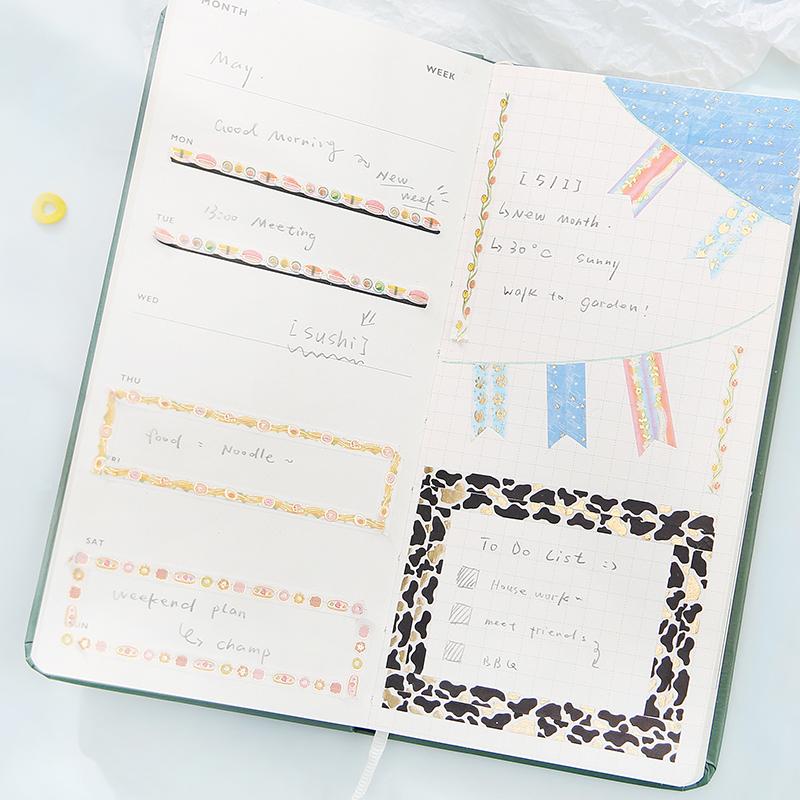 MONTH
WEEK
May.
Good Morning ~
MON
New
week
TUE
13:00 Meeting
WED
[sushi]
THU
food = Noodle ~
FRI
SAT
weekend plan
SUN
↳ champ
[5/1]
↳ New month.
↳ 30°C sunny
walk to garden!
To Do List :)
House work~
meet friends
BBQ